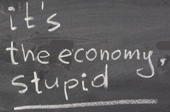 it's
the economy,
stupid